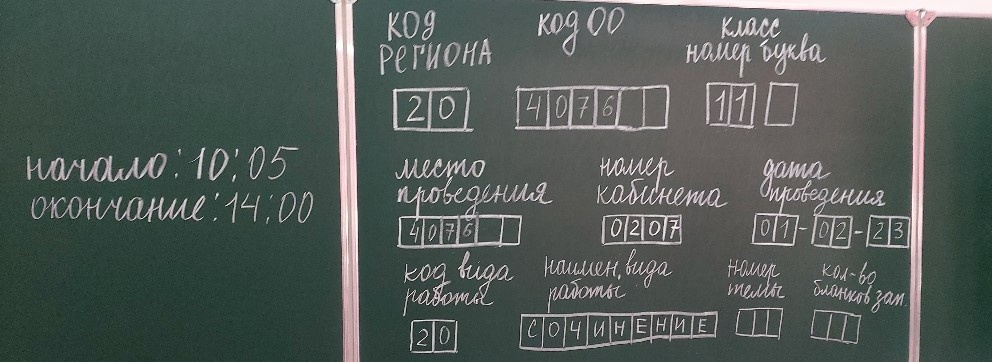 начало: 10:05
окончание: 14:00
код региона
20
код ОО
4076
класс
номер буква
11
место
проведения
4076
номер
кабинета
0207
дата
проведения
01-02-23
код вида
работы
20
наимен. вида
работы
СОЧИНЕНИЕ
номер
темы
кол-во
бланков зап.